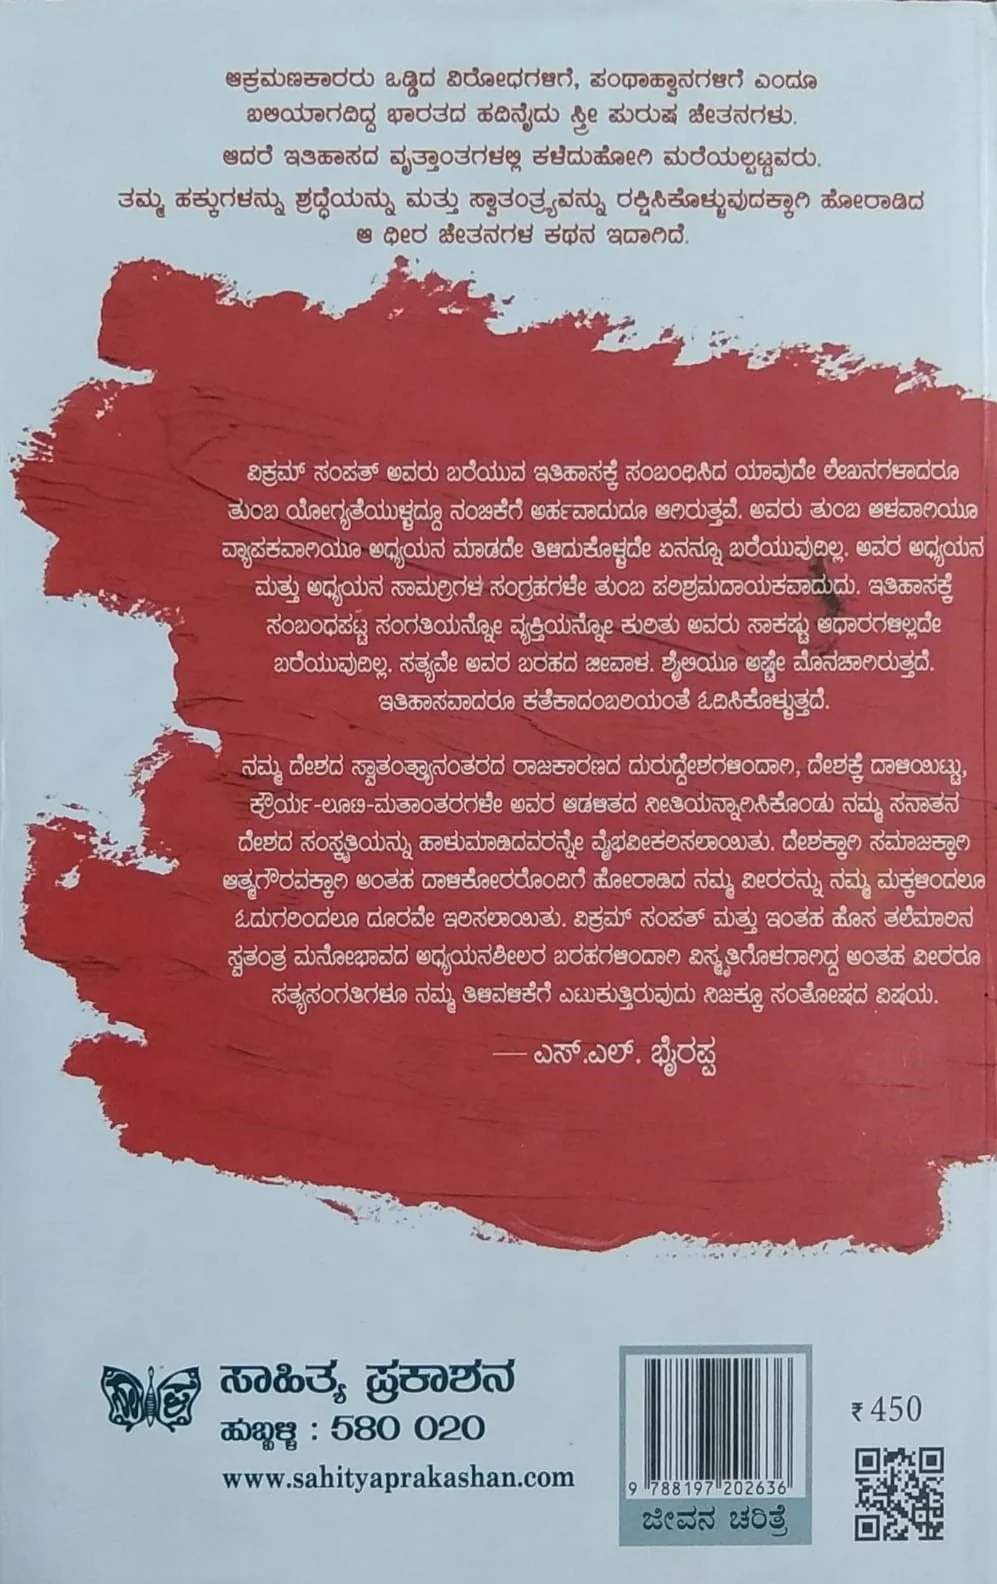 ಆಕ್ರಮಣಕಾರರು ಒಡ್ಡಿದ ವಿರೋಧಗಳಿಗೆ, ಪಂಥಾಹ್ವಾನಗಳಿಗೆ ಎಂದೂ
ಬಲಿಯಾಗದಿದ್ದ ಭಾರತದ ಹದಿನೈದು ಸ್ತ್ರೀ ಪುರುಷ ಚೇತನಗಳು.
ಆದರೆ ಇತಿಹಾಸದ ವೃತ್ತಾಂತಗಳಲ್ಲಿ ಕಳೆದುಹೋಗಿ ಮರೆಯಲ್ಪಟ್ಟವರು.
ತಮ್ಮ ಹಕ್ಕುಗಳನ್ನು ಶ್ರದ್ಧೆಯನ್ನು ಮತ್ತು ಸ್ವಾತಂತ್ರ್ಯವನ್ನು ರಕ್ಷಿಸಿಕೊಳ್ಳುವುದಕ್ಕಾಗಿ ಹೋರಾಡಿದ
ಆ ಧೀರ ಚೇತನಗಳ ಕಥನ ಇದಾಗಿದೆ.
ವಿಕ್ರಮ್ ಸಂಪತ್ ಅವರು ಬರೆಯುವ ಇತಿಹಾಸಕ್ಕೆ ಸಂಬಂಧಿಸಿದ ಯಾವುದೇ ಲೇಖನಗಳಾದರೂ
ತುಂಬ ಯೋಗ್ಯತೆಯುಳ್ಳದ್ದೂ ನಂಬಿಕೆಗೆ ಅರ್ಹವಾದುದೂ ಆಗಿರುತ್ತವೆ. ಅವರು ತುಂಬ ಆಳವಾಗಿಯೂ
ವ್ಯಾಪಕವಾಗಿಯೂ ಅಧ್ಯಯನ ಮಾಡದೇ ತಿಳಿದುಕೊಳ್ಳದೇ ಏನನ್ನೂ ಬರೆಯುವುದಿಲ್ಲ. ಅವರ ಅಧ್ಯಯನ
ಮತ್ತು ಅಧ್ಯಯನ ಸಾಮಗ್ರಿಗಳ ಸಂಗ್ರಹಗಳೇ ತುಂಬ ಪರಿಶ್ರಮದಾಯಕವಾದುದು. ಇತಿಹಾಸಕ್ಕೆ
ಸಂಬಂಧಪಟ್ಟ ಸಂಗತಿಯನ್ನೋ ವ್ಯಕ್ತಿಯನ್ನೋ ಕುರಿತು ಅವರು ಸಾಕಷ್ಟು ಆಧಾರಗಳಿಲ್ಲದೇ
ಬರೆಯುವುದಿಲ್ಲ. ಸತ್ಯವೇ ಅವರ ಬರಹದ ಜೀವಾಳ. ಶೈಲಿಯೂ ಅಷ್ಟೇ ಮೊನಚಾಗಿರುತ್ತದೆ.
ಇತಿಹಾಸವಾದರೂ ಕತೆಕಾದಂಬರಿಯಂತೆ ಓದಿಸಿಕೊಳ್ಳುತ್ತದೆ.
ನಮ್ಮ ದೇಶದ ಸ್ವಾತಂತ್ರ್ಯಾನಂತರದ ರಾಜಕಾರಣದ ದುರುದ್ದೇಶಗಳಿಂದಾಗಿ, ದೇಶಕ್ಕೆ ದಾಳಿಯಿಟ್ಟು,
ಕ್ರೌರ್ಯ-ಲೂಟಿ-ಮತಾಂತರಗಳೇ ಅವರ ಆಡಳಿತದ ನೀತಿಯನ್ನಾಗಿಸಿಕೊಂಡು ನಮ್ಮ ಸನಾತನ
ದೇಶದ ಸಂಸ್ಕೃತಿಯನ್ನು ಹಾಳುಮಾಡಿದವರನ್ನೇ ವೈಭವೀಕರಿಸಲಾಯಿತು. ದೇಶಕ್ಕಾಗಿ ಸಮಾಜಕ್ಕಾಗಿ
ಆತ್ಮಗೌರವಕ್ಕಾಗಿ ಅಂತಹ ದಾಳಿಕೋರರೊಂದಿಗೆ ಹೋರಾಡಿದ ನಮ್ಮ ವೀರರನ್ನು ನಮ್ಮ ಮಕ್ಕಳಿಂದಲೂ
ಓದುಗರಿಂದಲೂ ದೂರವೇ ಇರಿಸಲಾಯಿತು. ವಿಕ್ರಮ್ ಸಂಪತ್ ಮತ್ತು ಇಂತಹ ಹೊಸ ತಲೆಮಾರಿನ
ಸ್ವತಂತ್ರ ಮನೋಭಾವದ ಅಧ್ಯಯನಶೀಲರ ಬರಹಗಳಿಂದಾಗಿ ವಿಸ್ಮೃತಿಗೊಳಗಾಗಿದ್ದ ಅಂತಹ ವೀರರೂ
ಸತ್ಯಸಂಗತಿಗಳೂ ನಮ್ಮ ತಿಳಿವಳಿಕೆಗೆ ಎಟುಕುತ್ತಿರುವುದು ನಿಜಕ್ಕೂ ಸಂತೋಷದ ವಿಷಯ.
— ಎಸ್.ಎಲ್. ಭೈರಪ್ಪ
ಸಾಹಿತ್ಯ ಪ್ರಕಾಶನ
ಹುಬ್ಬಳ್ಳಿ : 580 020
www.sahityaprakashan.com
9 788197 202636
ಜೀವನ ಚರಿತ್ರೆ
₹ 450